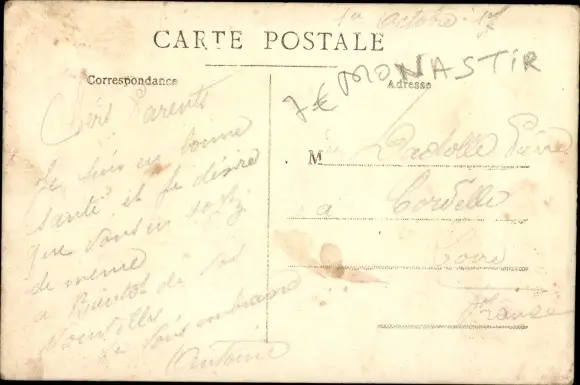 1er octobre
CARTE POSTALE
7€ MONASTIR
Correspondance
Adresse
Chers Parents
Je suis en bonne
santé et je désire
que vous en soyez
de même
a Bientôt de vos
Nouvelles
Je vous embrasse
Antoine
M Pierre
a Cordelle
Loire
France